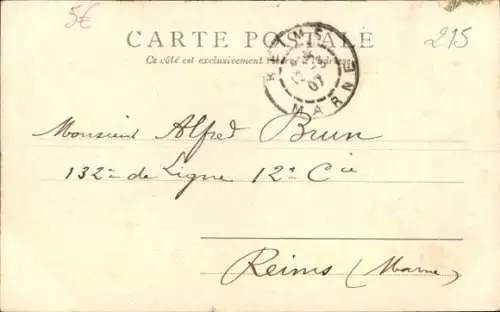 5€
CARTE POSTALE
215
Ce côté est exclusivement réservé à l'adresse
REIMS
07
MARNE
Monsieur Alfred Brun
132e de Ligne 12e Cie
Reims (Marne)